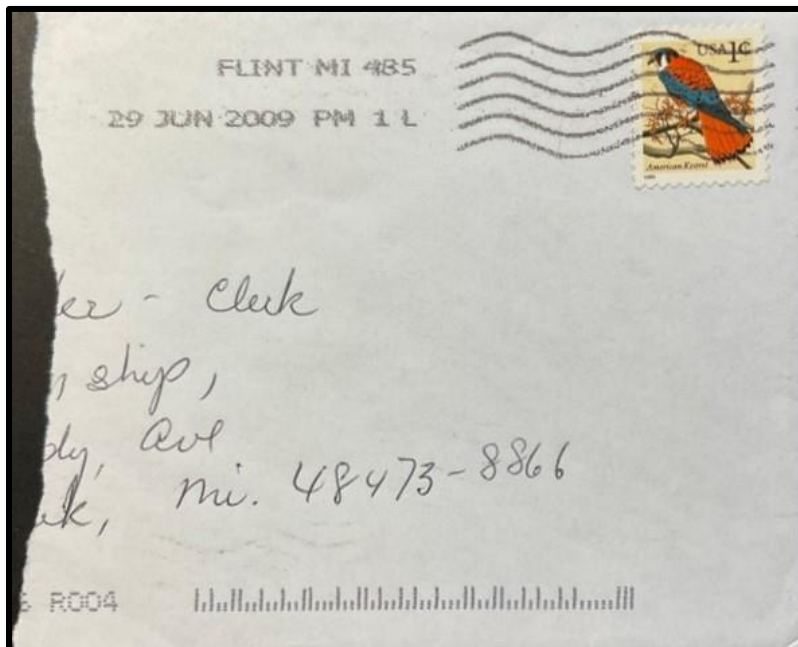 FLINT MI 485
29 JUN 2009 PM 1 L
USA 1¢
American Kestrel
er - Clerk
ship,
dy, Ave
k, Mi. 48473-8866
R004